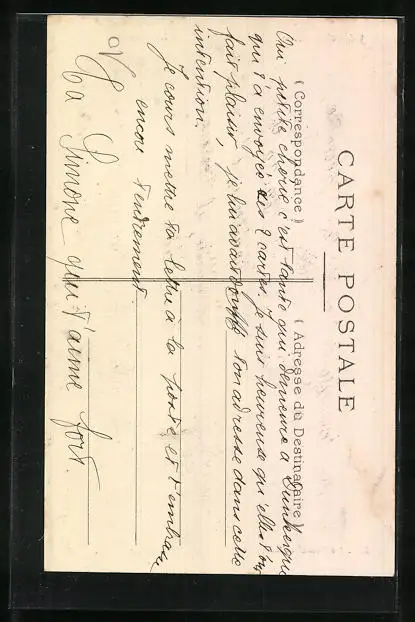 CARTE POSTALE
(Correspondance)
(Adresse du Destinataire)
Oui petite chérie c'est tante qui demeure à Dunkerque
qui t'a envoyée ces 2 cartes. Je suis heureuse qu'elles t'ont
fait plaisir, je lui avait ton adresse dans cette
intention.
Je cours mettre ta lettre à la poste et t'embrasse
encore tendrement.
Ta Simone qui t'aime fort.